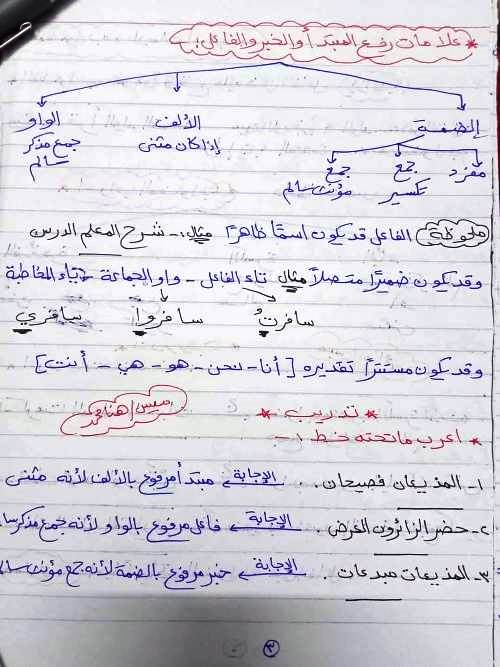 * علامات رفع المبتدأ والخبر والفاعل :-
الضمة الألف الواو
مفرد جمع تكسير جمع مؤنث سالم إذا كان مثنى جمع مذكر سالم
ملحوظة الفاعل قد يكون اسمًا ظاهرًا مثال :- شرح المعلم الدرس
وقد يكون ضميرًا متصلاً مثال تاء الفاعل - واو الجماعة - ياء المخاطبة
سافرتُ سافروا سافري
وقد يكون مستترًا تقديره [أنا - نحن - هو - هي - أنت]
* تدريب *
ميس / هنا محمد
* اعرب ما تحته خط :-
١- المذيعان فصيحان . الإجابة مبتدأ مرفوع بالألف لأنه مثنى
٢- حضر الزائرون العرض . الإجابة فاعل مرفوع بالواو لأنه جمع مذكر سالم
٣- المذيعات مبدعات . الإجابة خبر مرفوع بالضمة لأنه جمع مؤنث سالم
٣